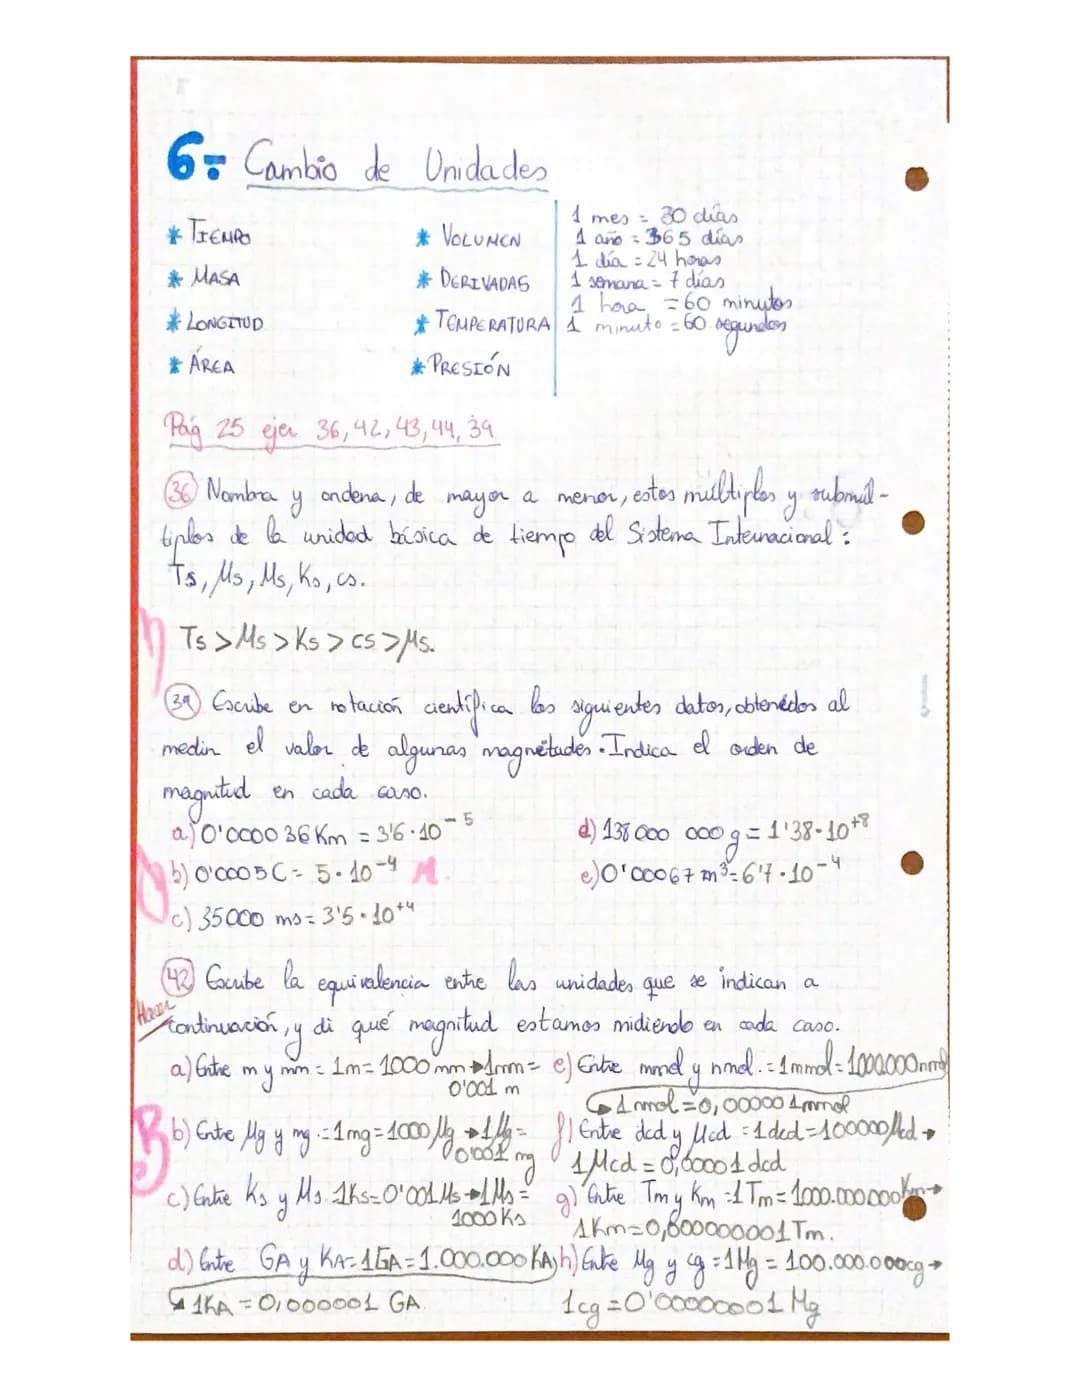 6.- Cambio de Unidades
* TIEMPO
* MASA
* LONGITUD
* ÁREA
* VOLUMEN
* DERIVADAS
* TEMPERATURA
* PRESIÓN
1 mes = 30 días
1 año = 365 días
1 día = 24 horas
1 semana = 7 días
1 hora = 60 minutos
1 minuto = 60 segundos
Pág 25 ejer 36, 42, 43, 44, 39
36 Nombra y ordena, de mayor a menor, estos múltiplos y submúl-
tiplos de la unidad básica de tiempo del Sistema Internacional:
Ts, μs, Ms, Ks, cs.
Ts > Ms > Ks > cs > μs.
39 Escribe en notación científica los siguientes datos, obtenidos al
medir el valor de algunas magnitudes. Indica el orden de
magnitud en cada caso.
a) 0'000036 Km = 3'6·10⁻⁵
b) 0'0005 C = 5·10⁻⁴ M
c) 35000 ms = 3'5·10⁺⁴
d) 138 000 000 g = 1'38·10⁺⁸
e) 0'00067 m³ = 6'7·10⁻⁴
42 Escribe la equivalencia entre las unidades que se indican a
Hacer
continuación, y di qué magnitud estamos midiendo en cada caso.
a) Entre m y mm = 1m = 1000 mm → 1mm =
0'001 m
b) Entre μg y mg. = 1mg = 1000 μg → 1μg =
0'001 mg
c) Entre Ks y Ms. 1Ks = 0'001 Ms → 1Ms =
1000 Ks
d) Entre GA y KA = 1GA = 1.000.000 KA
1KA = 0,000001 GA
e) Entre mmol y nmol. = 1mmol = 1000000 nmol
1nmol = 0,000001 mmol
f) Entre dcd y μcd = 1dcd = 100000 μcd →
1μcd = 0,00001 dcd
g) Entre Tm y Km = 1Tm = 1000.000.000 Km →
1Km = 0,000000001 Tm.
h) Entre Mg y cg = 1Mg = 100.000.000 cg →
1cg = 0'00000001 Mg